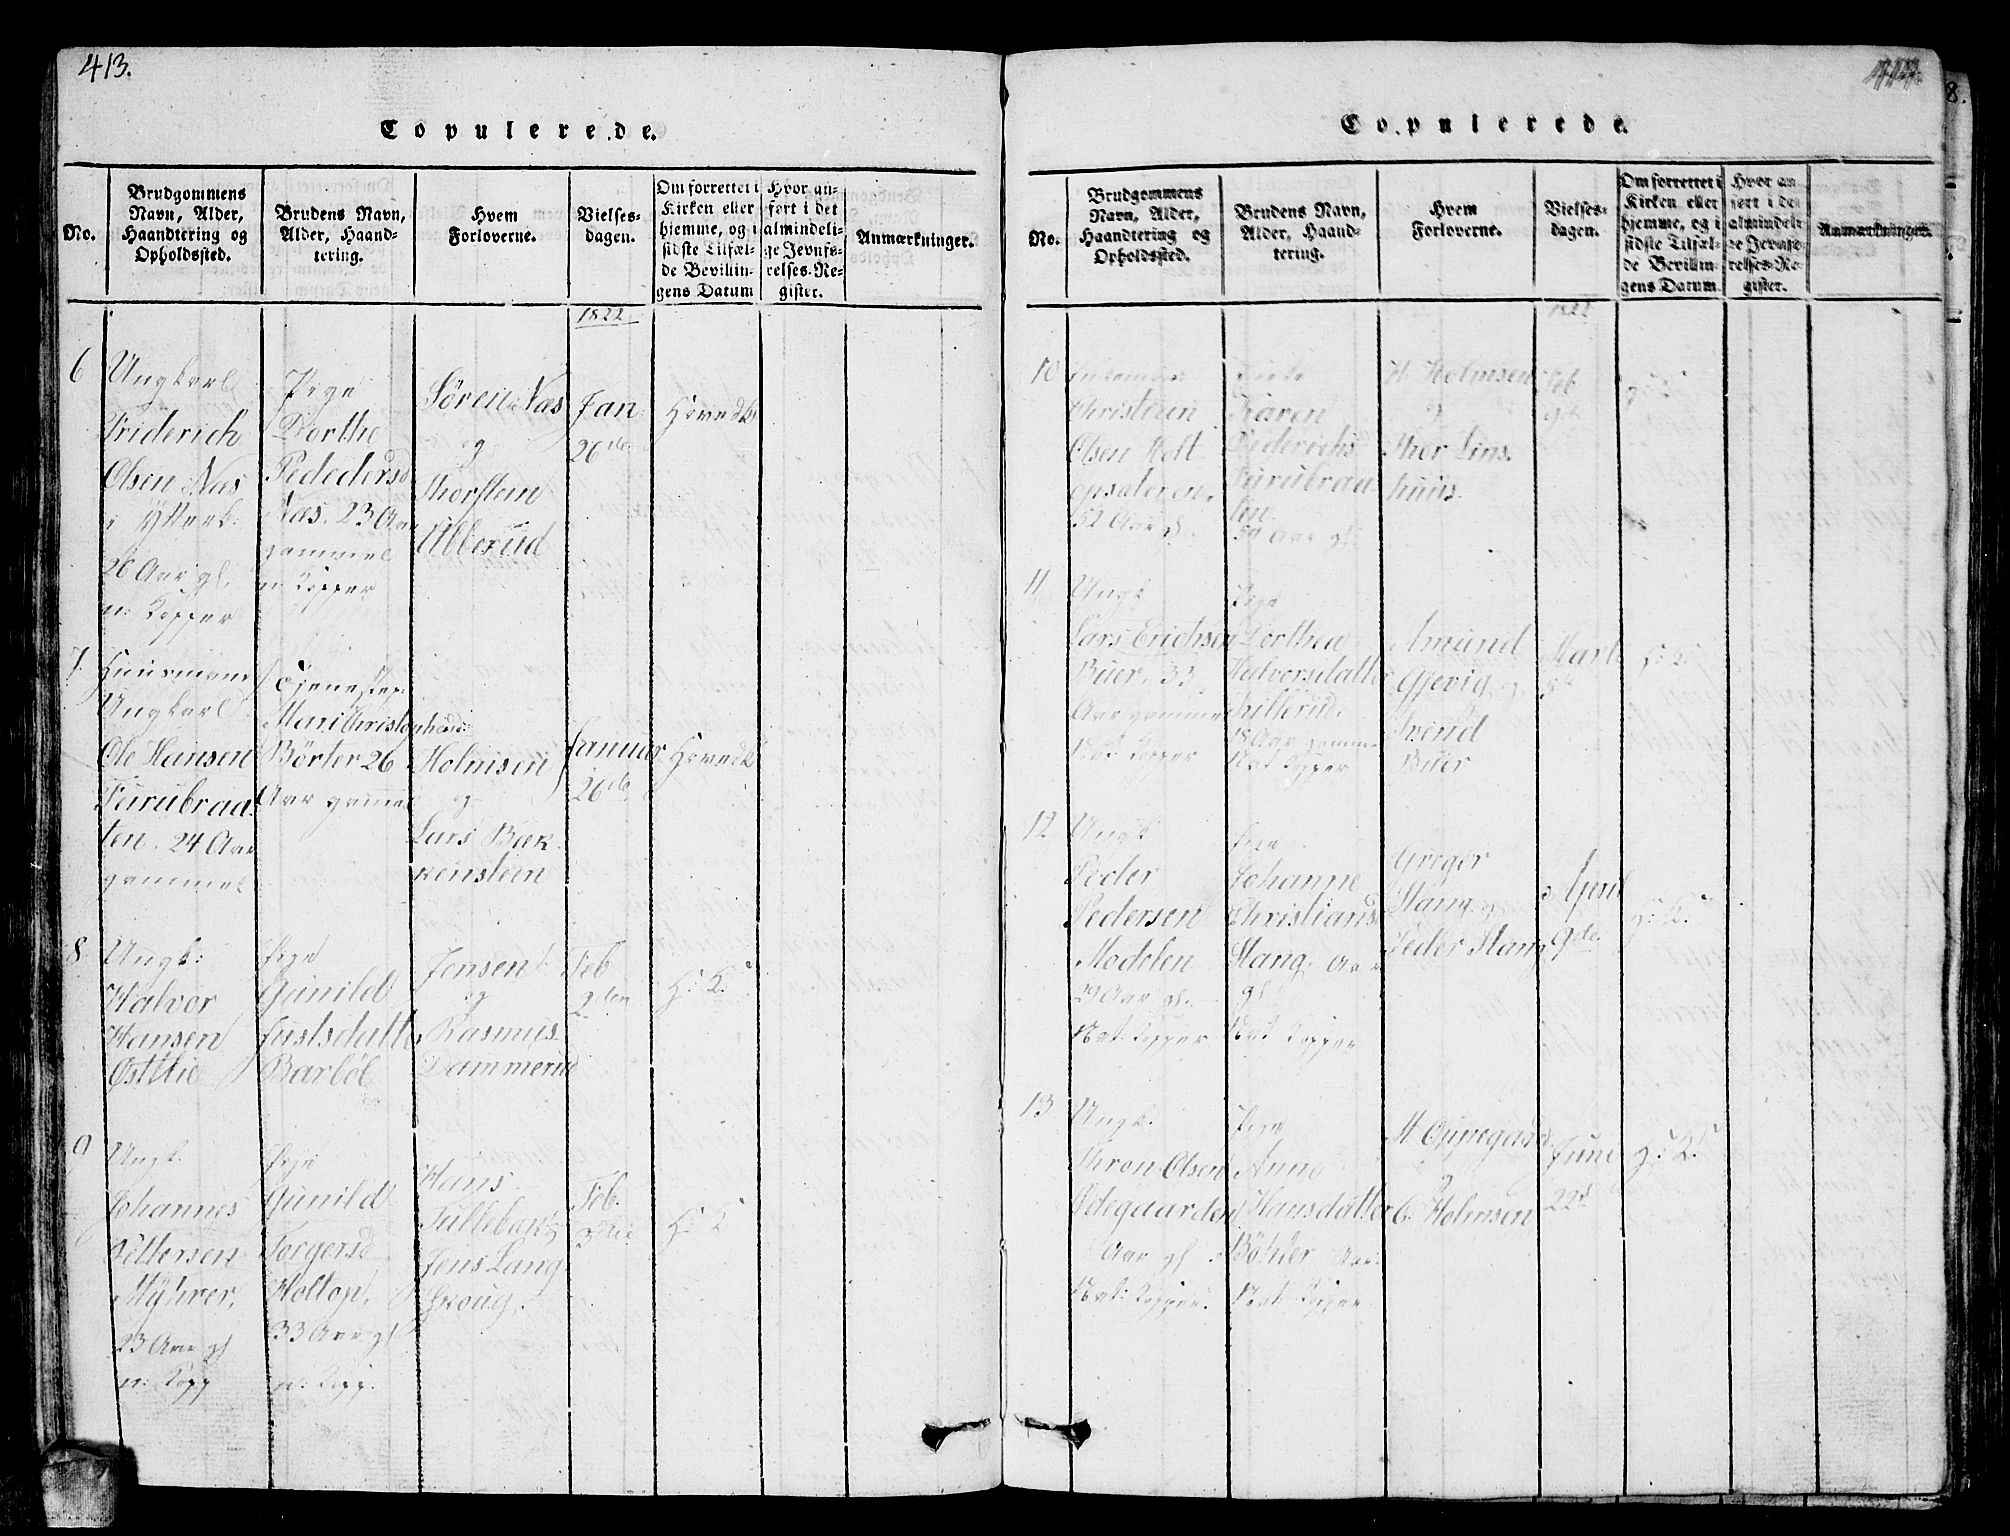 413.
Copulerede.
No.
Brudgommens
Navn, Alder,
Haandtering og
Opholdssted.
Brudens Navn,
Alder, Haand-
tering.
Hvem
Forloverne.
Vielses-
dagen.
Om forrettet i
Kirken eller
hjemme, og i
sidste Tilfæl-
de Bevillin-
gens Datum
Hvor an-
ført i det
almindeli-
ge Jevnfø-
relses-Re-
gister.
Anmærkninger.
1822
6
Ungkarl
Friderich
Olsen Næs
i
26 Aar gl.
n: Kopper
Pige
Dorthe
Næs. 23 Aar
gammel
n Kopper
Søren Næs
og
Thorsten
Ulberud
Jan
26de
Hovedk
7
Huusmand
Ungkarl
Ole Hansen
Furubraa-
ten. 24 Aar
gammel
Tjenestep.
Mari Christophersd:
Börter 26
Aar gamel
Holmsen
og
Lars Bæk-
kensteen
Januar
26de
Hovedk
8
Ungk:
Halvor
Hansen
Östlie
Pige
Gunild
Justsdatter
Barböl
Jensen
og
Rasmus
Dammerud
Feb
2den
H: K.
9
Ungk.
Johannes
Pettersen
Myhrer,
23 Aar gl
n: Kopp
Pige
Gunild
Torgersd
Holtop,
33 Aar gl
n: Kopp.
Hans
Jens Lang
Feb.
H: K
Copulerede.
No.
Brudgommens
Navn, Alder,
Haandtering og
Opholdssted.
Brudens Navn,
Alder, Haand-
tering.
Hvem
Forloverne.
Vielses-
dagen.
Om forrettet i
Kirken eller
hjemme, og i
sidste Tilfæl-
de Bevillin-
gens Datum.
Hvor an-
ført i det
almindeli-
ge Jevnfø-
relses-Re-
gister.
Anmærkninger.
1822
10
Christian
Olsen Holt
opsateren.
52 Aar gl.
Karen
Diderichs
Furubraa
ten.
50 Aar gl.
H Holmsen
og
Thor Lins.
huus.
Feb
H: K
11
Ungk
Lars Erichsen
Buer. 33
Aar gammel
Nat: Kopper
Pige
Dorthea
Hedvorsdatter
18 Aar gamme
Nat Kopper
Amund
Gjevig og
Svend
Buer
Marti
H: K.
12
Ungk
Peder
Pedersen
Modelen
29 Aar gl.
Nat: Kopper
Pige
Johanne
Christians
Stang, Aar
gl
Nat Kopper
Greger
Stang og
Peder Stang
April
9de.
H: K.
13
Ungk.
Thron Olsen
Ödegaarden
Aar gl.
Nat: Kopper.
Pige
Anne
Hansdatter
Böhler Aar
Nat Kopper
H Oppegaard
og
C. Holmsen
Juni
22d
H: K.